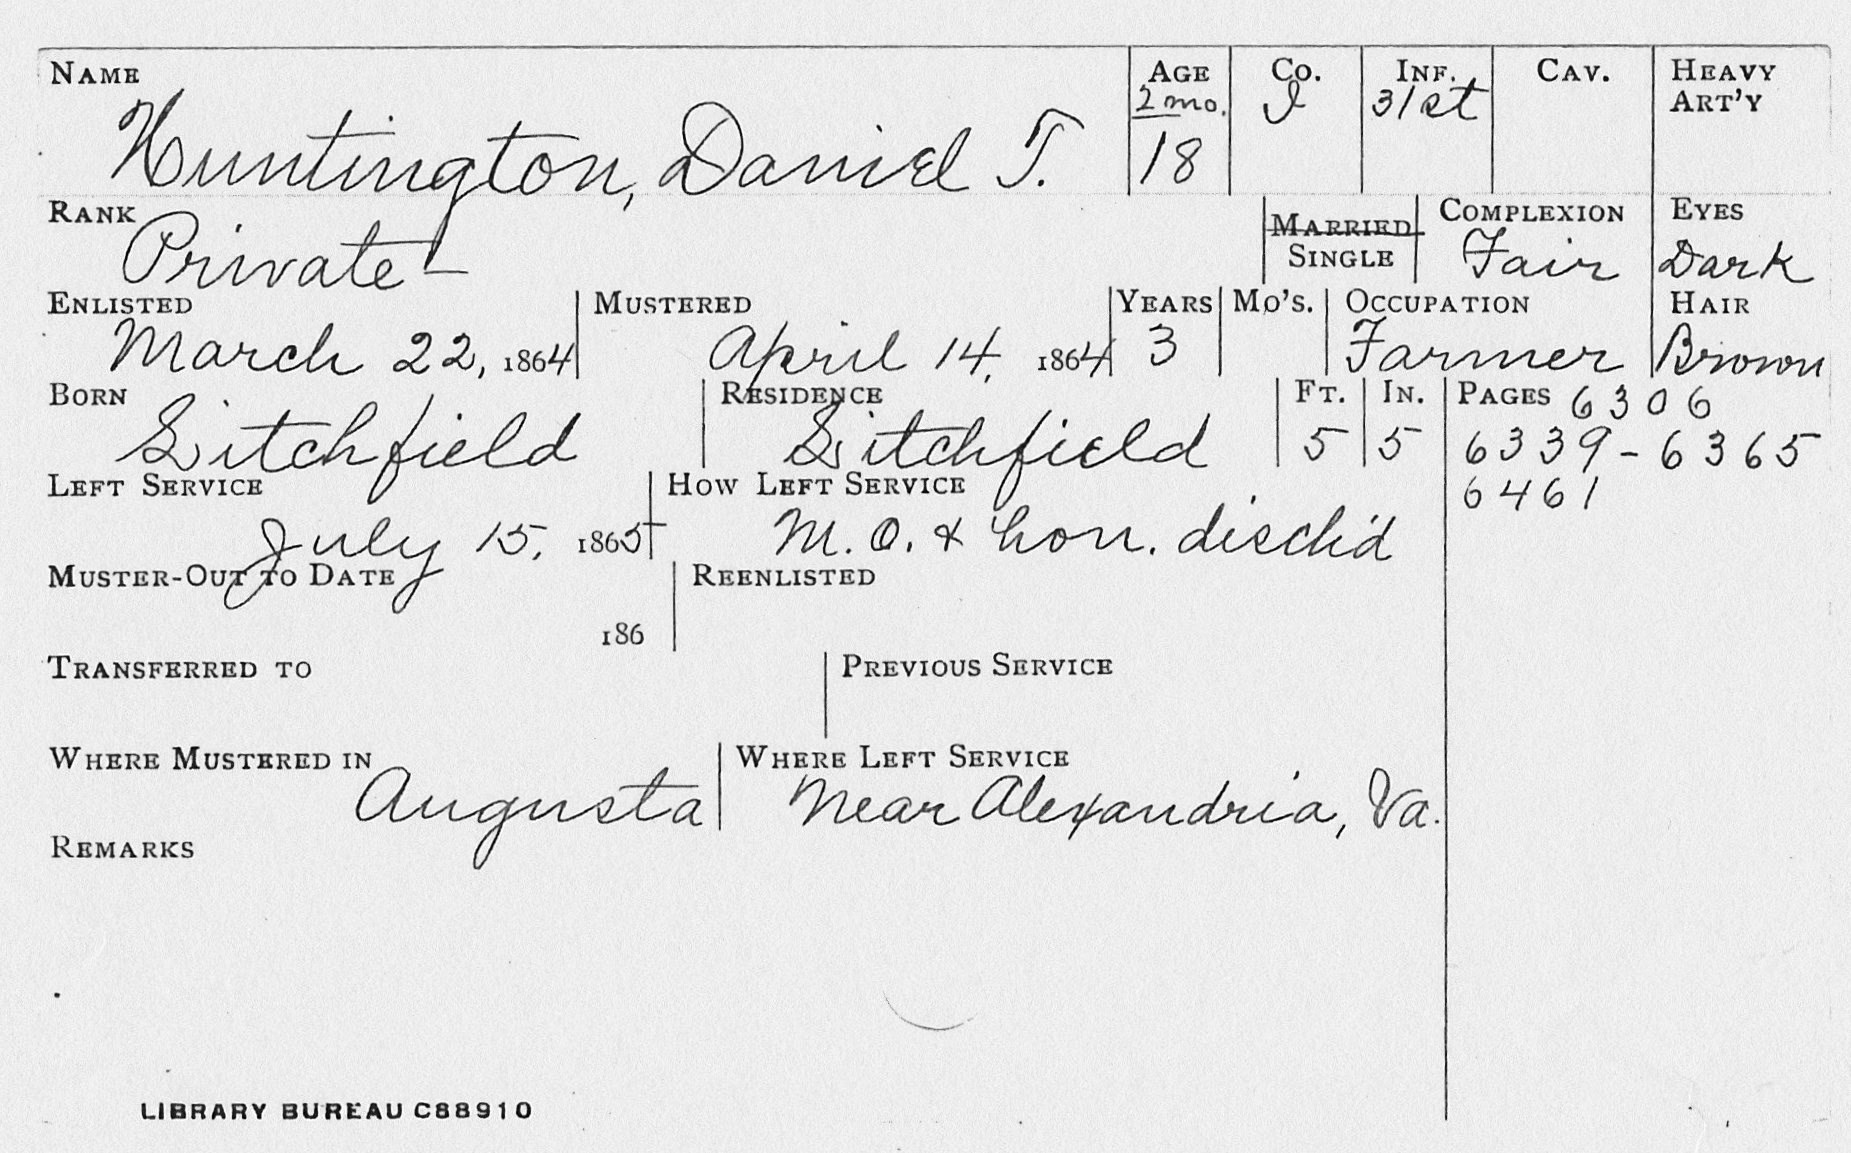 NAME AGE CO. INF. CAV. HEAVY ART'Y
2 mo. I 31st
Huntington, Daniel T. 18
RANK MARRIED SINGLE COMPLEXION EYES
Private — Fair Dark
ENLISTED MUSTERED YEARS MO'S. OCCUPATION HAIR
March 22, 1864 April 14, 1864 3 Farmer Brown
BORN RESIDENCE FT. IN. PAGES 6306
Litchfield Litchfield 5 5 6339-6365
LEFT SERVICE HOW LEFT SERVICE 6461
July 15, 1865 M.O. & hon. disch'd
MUSTER-OUT TO DATE REENLISTED
186
TRANSFERRED TO PREVIOUS SERVICE
WHERE MUSTERED IN WHERE LEFT SERVICE
Augusta Near Alexandria, Va.
REMARKS
LIBRARY BUREAU C88910